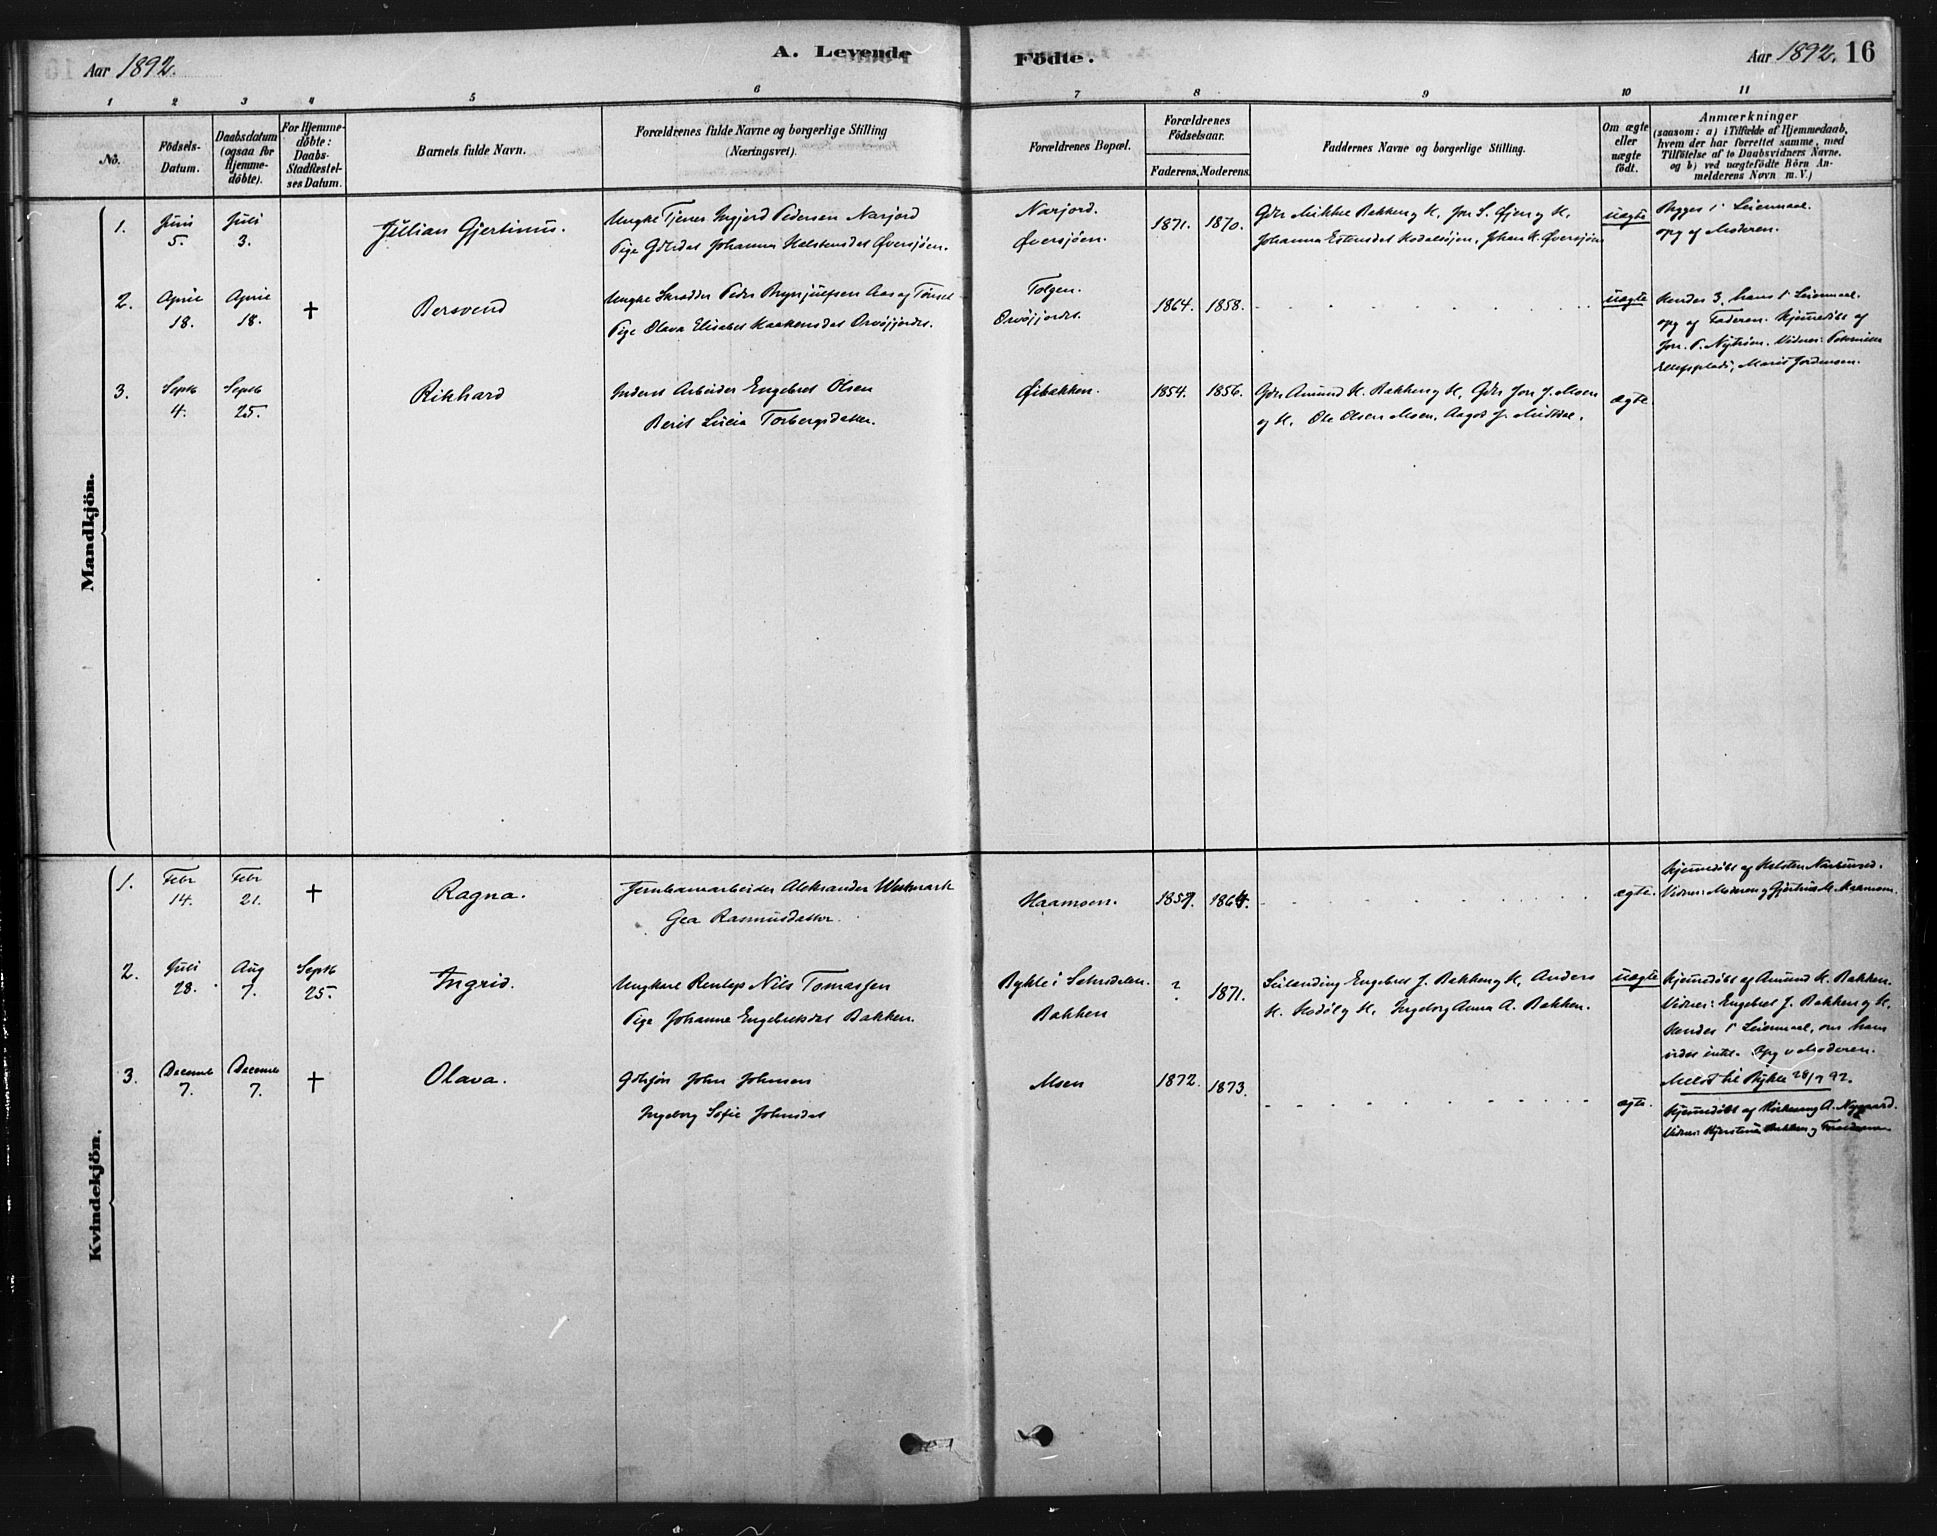 Aar 1892.
A. Levende Födte.
Aar 1892. 16
1 2 3 4 5 6 7 8 9 10 11
No.
Födsels-
Datum.
Daabsdatum
(ogsaa for
Hjemme-
döbte).
For Hjemme-
döbte:
Daabs-
Stadfæstel-
ses Datum.
Barnets fulde Navn.
Forældrenes fulde Navne og borgerlige Stilling
(Næringsvei).
Forældrenes Bopæl.
Forældrenes
Födselsaar.
Faderens. Moderens.
Faddernes Navne og borgerlige Stilling.
Om ægte
eller
uægte
født.
Anmærkninger
(saasom: a) i Tilfælde af Hjemmedaab,
hvem der har forrettet samme, med
Tilföielse af to Daabsvidners Navne,
og b) ved uægtefödte Börn An-
melderens Navn m. V.)
Mandkjön.
1. Juni 5. Juli 3. Julian Gjertinus.
Ungke Tjener Ingjerd Pedersen Narjord
Pige Johanna Halstensdat Øversjøen.
Narjord.
Øversjøen.
1871. 1870.
Gdr Mikkel Bakken og K, Jon S. Øien og K,
Johanna Estensdat Kodalsjøen, Johan K. Øversjøen
uægte
Begges 1' Leiermaal.
opg af Moderen.
2. April 18. April 18. † Bersvend
Ungke Skrædder Peder Brynjulfsen Aas af Tønset
Pige Olava Elisabet Haakensdat Orvosjordet.
Tolgen.
1864. 1858.
uægte
Hendes 3, hans 1' Leiermaal.
opg af Faderen. Hjemmedøbt af
Jon P. Nytrøen. Vidner:
3. Septb 4. Septb 25. Rikhard
Inderst Arbeider Engebret Olsen
Berit Lucia Torbergsdatter.
Øibakken.
1854. 1856.
Gdr Amund K. Bakken og K, Gdr Jon J. Moen
og K, Ole Olsen Moen, Aagot J.
ægte
Kvindekjön.
1. Febr 14. Febr 21. † Ragna.
Jernbanearbeider Aleksander Westmark
Gea Rasmusdatter.
Haamoen.
1859. 1864.
ægte.
Hjemmedøbt af Halsten
Vidner: Moderen og
2. Juli 28. Aug 7. Septb 25. Ingrid.
Ungkarl Nils Tomassen
Pige Johanne Engebretsdat Bakken.
Bykle i Setesdalen.
Bakken
? 1871.
Engebret J. Bakken og K, Anders
K. Kodøl og K, Ingeborg Anna A. Bakken.
uægte
Hjemmedøbt af Amund K. Bakken.
Vidner: Engebret J. Bakken og K,
Hendes 1' Leiermaal, om hans
vides intet. Opg v Moderen.
Meldt til Bykle 28/9 92.
3. Decemb 7. Decemb 7. † Olava.
John Johnsen
Ingeborg Sofie Johnsdat
Moen
1872. 1873.
ægte.
Hjemmedøbt af A. Nygaard.
Vidner: Kjerstina Bakken og Forældrene